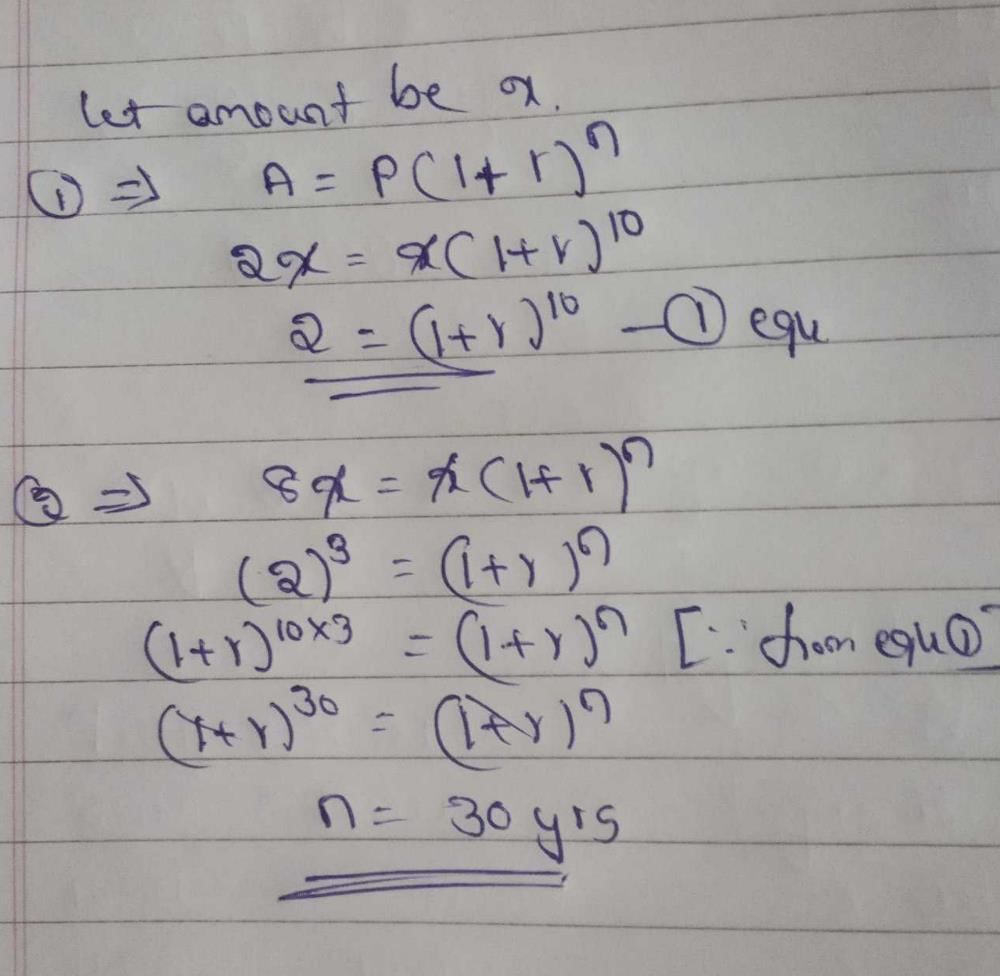 let amount be x.
① ⇒ A = P(1+r)ⁿ
2x = x(1+r)¹⁰
2 = (1+r)¹⁰ —① equ
② ⇒ 8x = x(1+r)ⁿ
(2)³ = (1+r)ⁿ
(1+r)¹⁰ˣ³ = (1+r)ⁿ [∵ from equ①]
(1+r)³⁰ = (1+r)ⁿ
n = 30 yrs